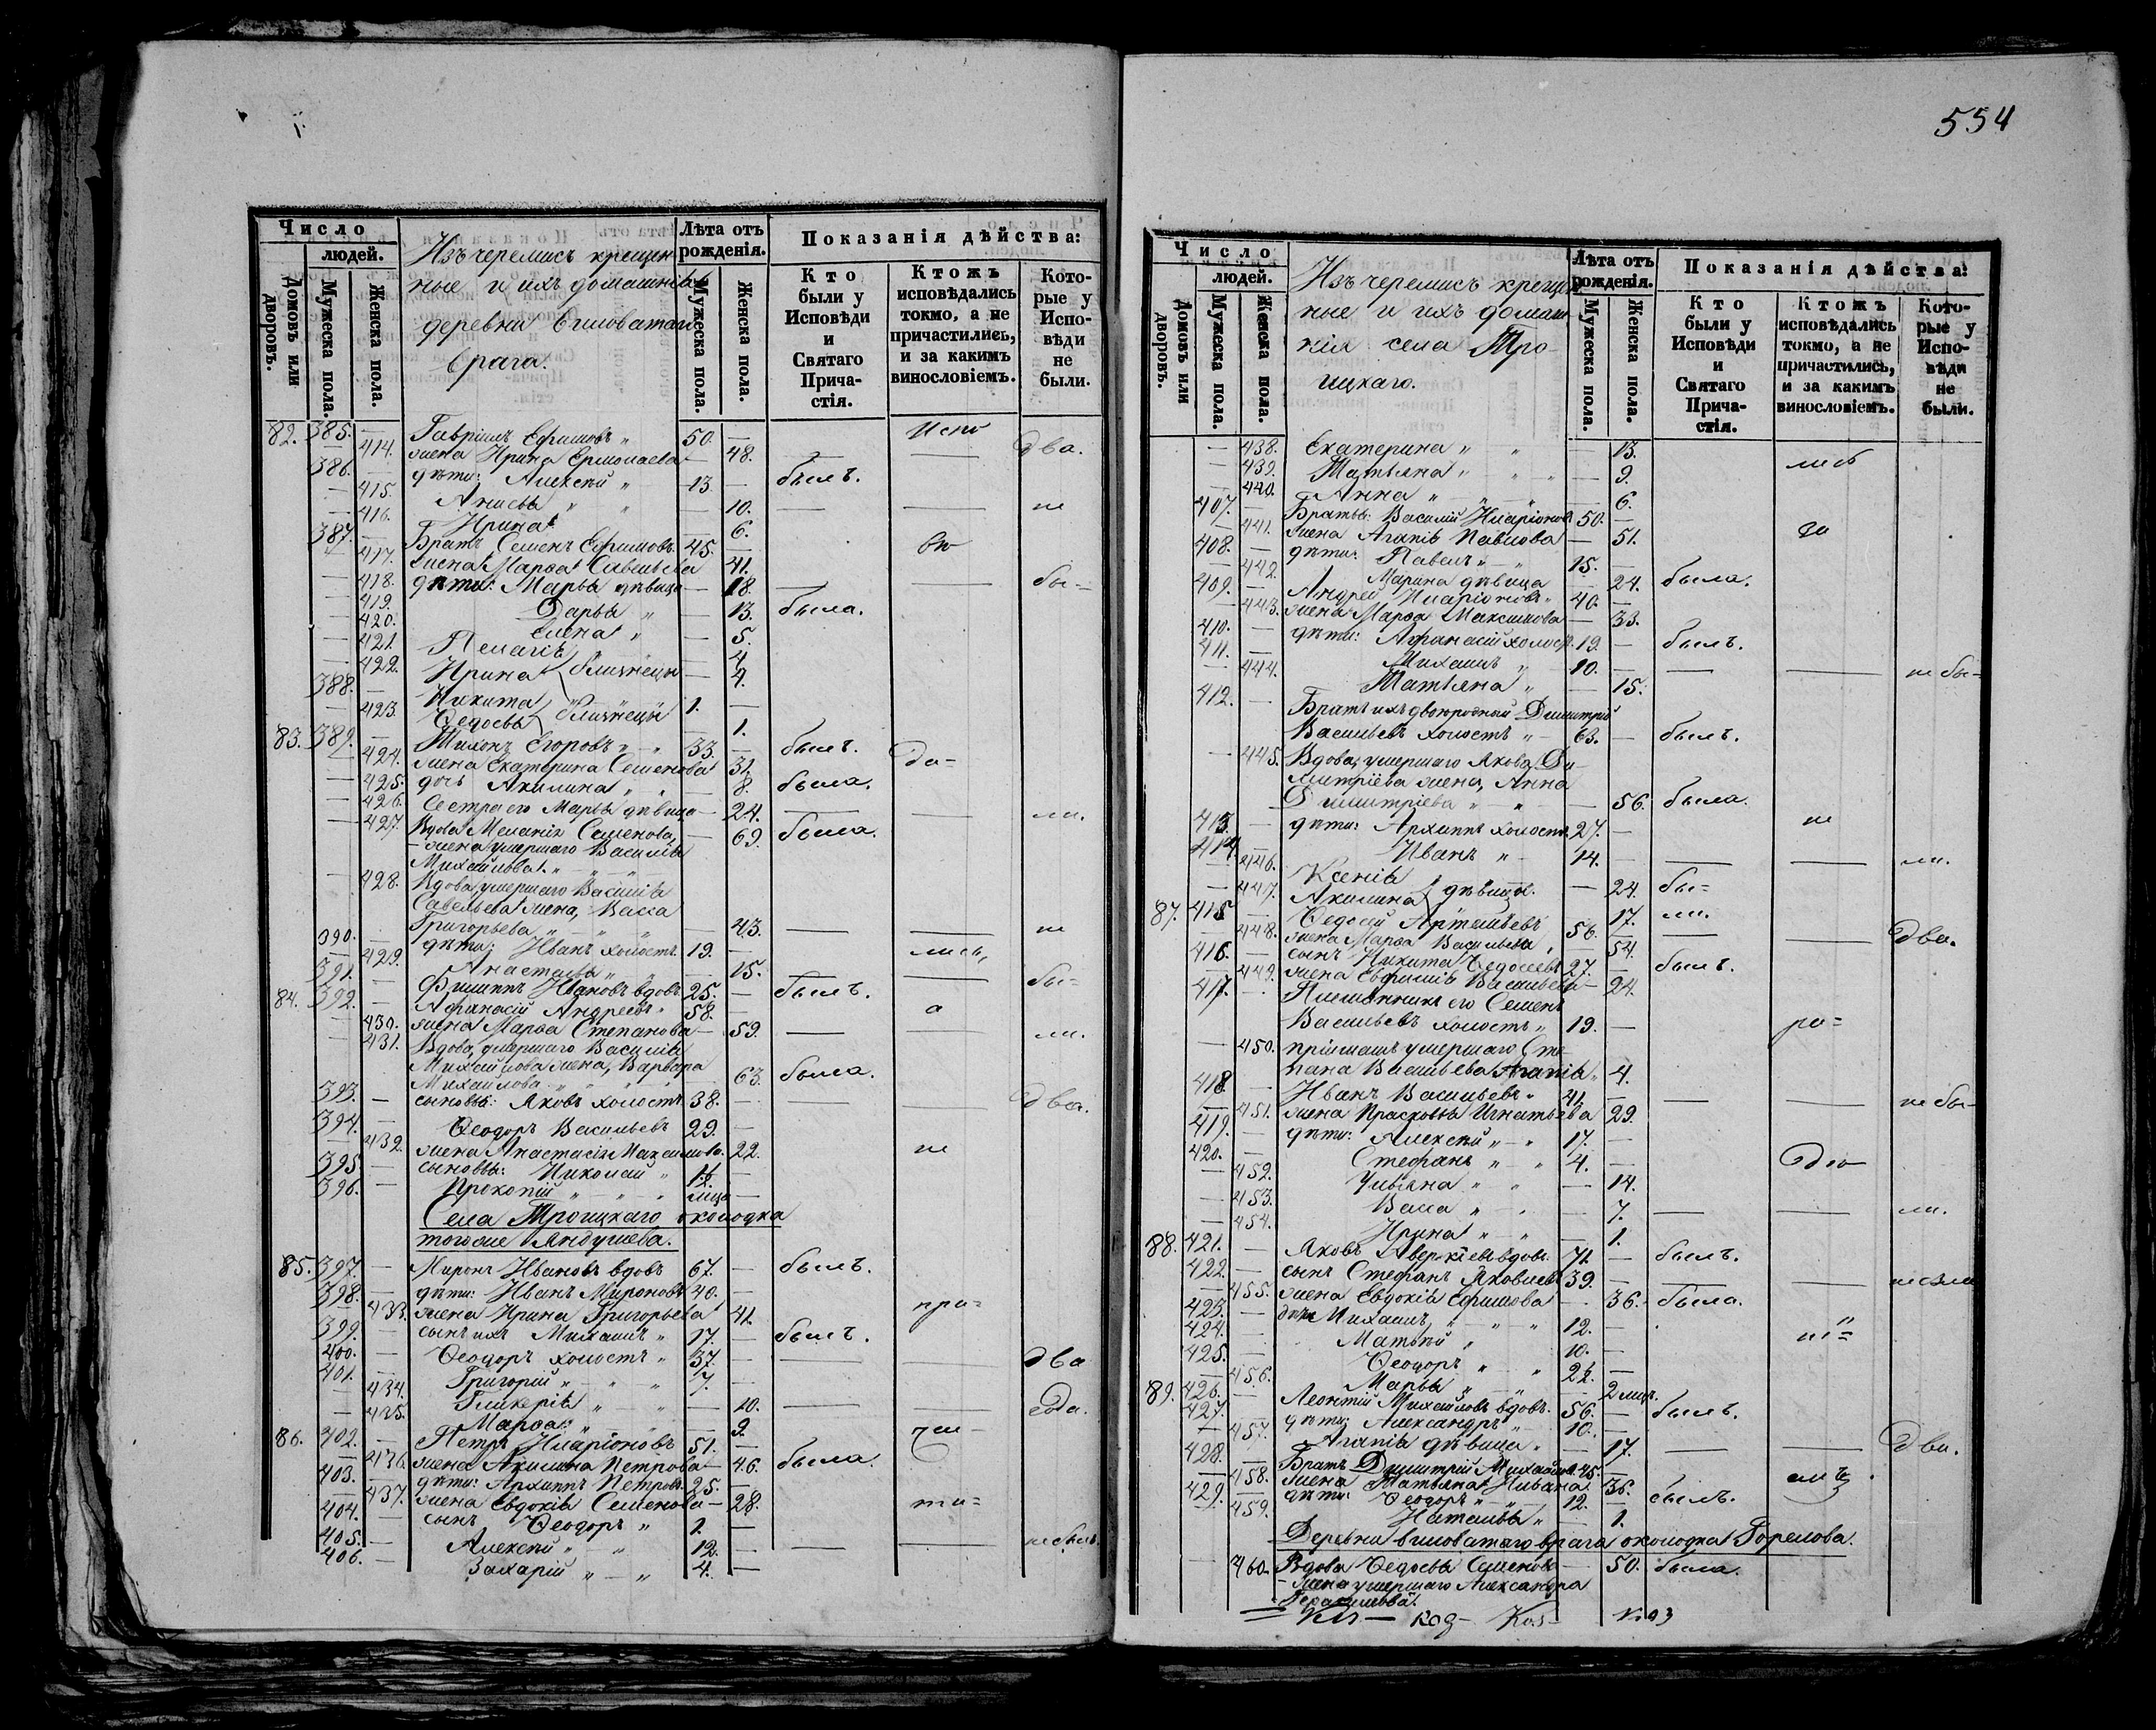 554
Число
людей.
Домовъ или дворовъ.
Мужеска пола.
Женска пола.
Изъ черемисъ крещен
ные и ихъ домашнія
деревни Виловатаго
Врага.
Лѣта отъ рожденія.
Мужеска пола.
Женска пола.
Показанія дѣйства:
Кто были у Исповѣди и Святаго Причастія.
Ктожъ исповѣдались токмо, а не причастились, и за какимъ винословіемъ.
Которые у Исповѣди не были.
82. 385. — Гавріилъ Ефимовъ „ 50. — Испо
— 414. жена Ирина Ермолаева — 48. — — два.
386. — дѣти: Алексѣй „ 13. — былъ.
— 415. Анисья „ „ — 10. — — не
— 416. Ирина — 6.
387. — Братъ Семенъ Ефимовъ. 45. — вѣ
— 417. жена Марѳа Савельева 41.
— 418. дѣти: Марья дѣвица — 18. — — бы-
— 419. Дарья „ — 13. была.
— 420. Елена „ — 5.
— 421. Пелагія — 4.
— 422. Ирина близнецы — 4.
388. — Никита 1. —
— 423. Ѳедосья близнецы — 1.
83. 389. — Тихонъ Егоровъ „ „ 33. — былъ. да-
— 424. жена Екатерина Семенова 31.
— 425. дочь Акилина „ „ — 8. была.
— 426. Сестра его Марья дѣвица — 24. — — ли.
— 427. Вдова Меланія Семенова, — 69. была.
жена умершаго Василія
Михайлова. „ „ „
— 428. Вдова, умершаго Василія
Савельева жена, Васса
Григорьева „ „ „ — 43. — — не
390. — дѣти: Иванъ холостъ. 19. — лись,
— 429. Анастасья „ „ — 15. — — бы-
391. — Филиппъ Ивановъ вдовъ 25. — былъ.
84. 392. — Афанасій Андреевъ „ 58. — а
— 430. жена Марѳа Степанова — 59. — — ли.
— 431. Вдова, умершаго Василія
Михайлова жена, Варвара
Михайлова „ „ „ „ — 63. была.
393. — сыновья: Яковъ холостъ 38. — — — два.
394. — Ѳеодоръ Васильевъ 29. —
— 432. жена Анастасія Максимова. 22. не
395. — сыновья: Николай „ 1½. —
396. — Прокопій „ „ „ мцъ —
Села Троицкаго околодка
тогоже Яндушева.
85. 397. — Миронъ Ивановъ вдовъ 67. — былъ.
398. — дѣти: Иванъ Мироновъ 40. —
— 433. жена Ирина Григорьева 41. при-
399. — сынъ ихъ Михаилъ „ 17. — былъ.
400. — Ѳеодоръ холостъ „ 37. — — два
401. — Григорій „ „ „ 7. —
— 434. Гликерія „ „ — 10. — — года.
— 435. Марѳа „ „ — 9.
86. 402. — Петръ Иларіоновъ 51. —
— 436. жена Акилина Петрова — 46. была.
403. — дѣти: Архиппъ Петровъ. 25. —
— 437. жена Евдокія Семенова — 28. ти-
404. — сынъ Ѳеодоръ „ 1. —
405. — Алексѣй „ „ 12. — — —
406. — Захарій „ „ 4. —
Число
людей.
Домовъ или дворовъ.
Мужеска пола.
Женска пола.
Изъ черемисъ крещен
ные и ихъ домаш
нія села Тро-
ицкаго.
Лѣта отъ рожденія.
Мужеска пола.
Женска пола.
Показанія дѣйства:
Кто были у Исповѣди и Святаго Причастія.
Ктожъ исповѣдались токмо, а не причастились, и за какимъ винословіемъ.
Которые у Исповѣди не были.
— 438. Екатерина „ „ — 13.
— 439. Татьяна „ „ „ — 9. лись
— 440. Анна „ „ „ — 6.
407. — Братья: Василій Иларіоновъ 50. —
— 441. жена Агапія Павлова — 51. за
408. — дѣти: Павелъ „ „ 15. —
— 442. Марина дѣвица — 24. была.
409. — Андрей Иларіоновъ „ 40. —
— 443. жена Марѳа Максимова — 33.
410. — дѣти: Афанасій холост. 19. — былъ.
411. — Михаилъ „ 10. — — — не бы-
— 444. Татьяна „ — 15.
412. — Братъ ихъ двоюродный Димитрій
Васильевъ холостъ „ 63. — былъ.
— 445. Вдова, умершаго Якова Ди-
митріева жена, Анна
Димитріева „ „ — 56. была.
413. — дѣти: Архиппъ холостъ 27. — не
414. — Иванъ „ 14. — — — ли.
— 446. Ксенія — 24. бы-
— 447. Акилина дѣвицы. — 17. ли.
87. 415. — Ѳедосій Артемьевъ 56. — — — два.
— 448. жена Марѳа Васильева „ — 54.
416. — сынъ Никита Ѳедосеевъ 27. — былъ.
— 449. жена Евфимія Васильева — 24.
417. — Племянникъ его Семенъ
Васильевъ холостъ „ 19. — ра-
— 450. пріимашъ умершаго Сте-
пана Васильева Агапія „ 4.
418. — Иванъ Васильевъ „ 41. — — — не бы-
— 451. жена Прасковья Игнатьева 29.
419. — дѣти: Алексѣй „ „ 17. —
420. — Стефанъ „ „ 4. —
— 452. Ульяна „ „ — 14.
— 453. Васса „ „ — 7. — — ли.
— 454. Ирина „ „ — 1.
88. 421. — Яковъ Аверкіевъ вдовъ. 71. — былъ.
422. — сынъ Стефанъ Яковлевъ 39. — — —
— 455. жена Евдокія Ефимова — 36. была.
423. — дѣти Михаилъ „ „ „ 12. —
424. — Матвѣй „ 10. —
425. — Ѳеодоръ „ „ 2½. —
— 456. Марья „ „ — 2 мцъ.
89. 426. — Леонтій Михайловъ вдовъ. 56. — былъ.
427. — дѣти: Александръ „ 10. —
— 457. Агапія дѣвица „ — 17. — — два.
428. — Братъ Димитрій Михайловъ 45.
— 458. жена Татьяна Ивана. 36.
429. — дѣти: Ѳеодоръ „ „ 12. — былъ.
— 459. Наталья „ — 1.
Деревни Виловатаго врага околодка Горелова.
— 460. Вдова Ѳедосья Семенова — 50. была.
жена умершаго Александра
Герасимова.